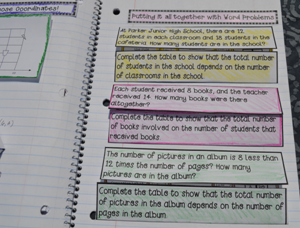 Putting it all together with Word Problems
At Parker Junior High School, there are 12
students in each classroom and 16 students in the
cafeteria. How many students are in the school?
Complete the table to show that the total number
of students in the school depends on the number
of classrooms in the school.
Each student received 8 books, and the teacher
received 14. How many books were there
altogether?
Complete the table to show that the total number
of books involved on the number of students that
received books.
The number of pictures in an album is 8 less than
12 times the number of pages? How many
pictures are in the album?
Complete the table to show that the total number
of pictures in the album depends on the number of
pages in the album.